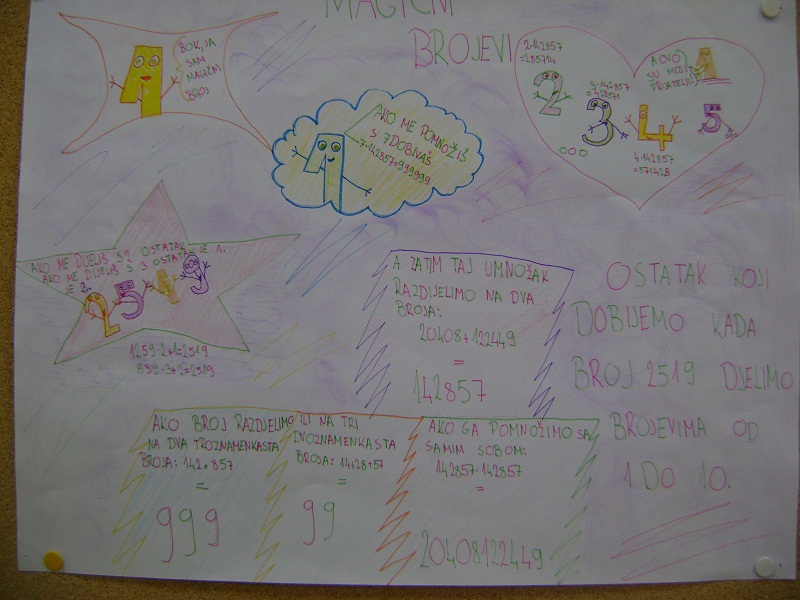 MAGIČNI
BROJEVI
BOK, JA
SAM
MAGIČNI
BROJ
AKO ME POMNOŽIŠ
S 7 DOBIVAŠ
7·142857=999999
2·142857
=285714
3·142857
=428571
A OVO
SU MOJI
PRIJATELJI
2 3 4 5
4·142857
=571428
AKO ME DIJELIŠ S 2 OSTATAK JE 1.
AKO ME DIJELIŠ S 3 OSTATAK
JE 2.
2519
1259·2+1=2519
839·3+2=2519
A ZATIM TAJ UMNOŽAK
RAZDIJELIMO NA DVA
BROJA:
20408+122449
=
142857
OSTATAK KOJI
DOBIJEMO KADA
BROJ 2519 DJELIMO
BROJEVIMA OD
1 DO 10.
AKO BROJ RAZDJELIMO
NA DVA TROZNAMENKASTA
BROJA: 142+857
=
999
ILI NA TRI
DVOZNAMENKASTA
BROJA: 14+28+57
=
99
AKO GA POMNOŽIMO SA
SAMIM SOBOM:
142857·142857
=
20408122449